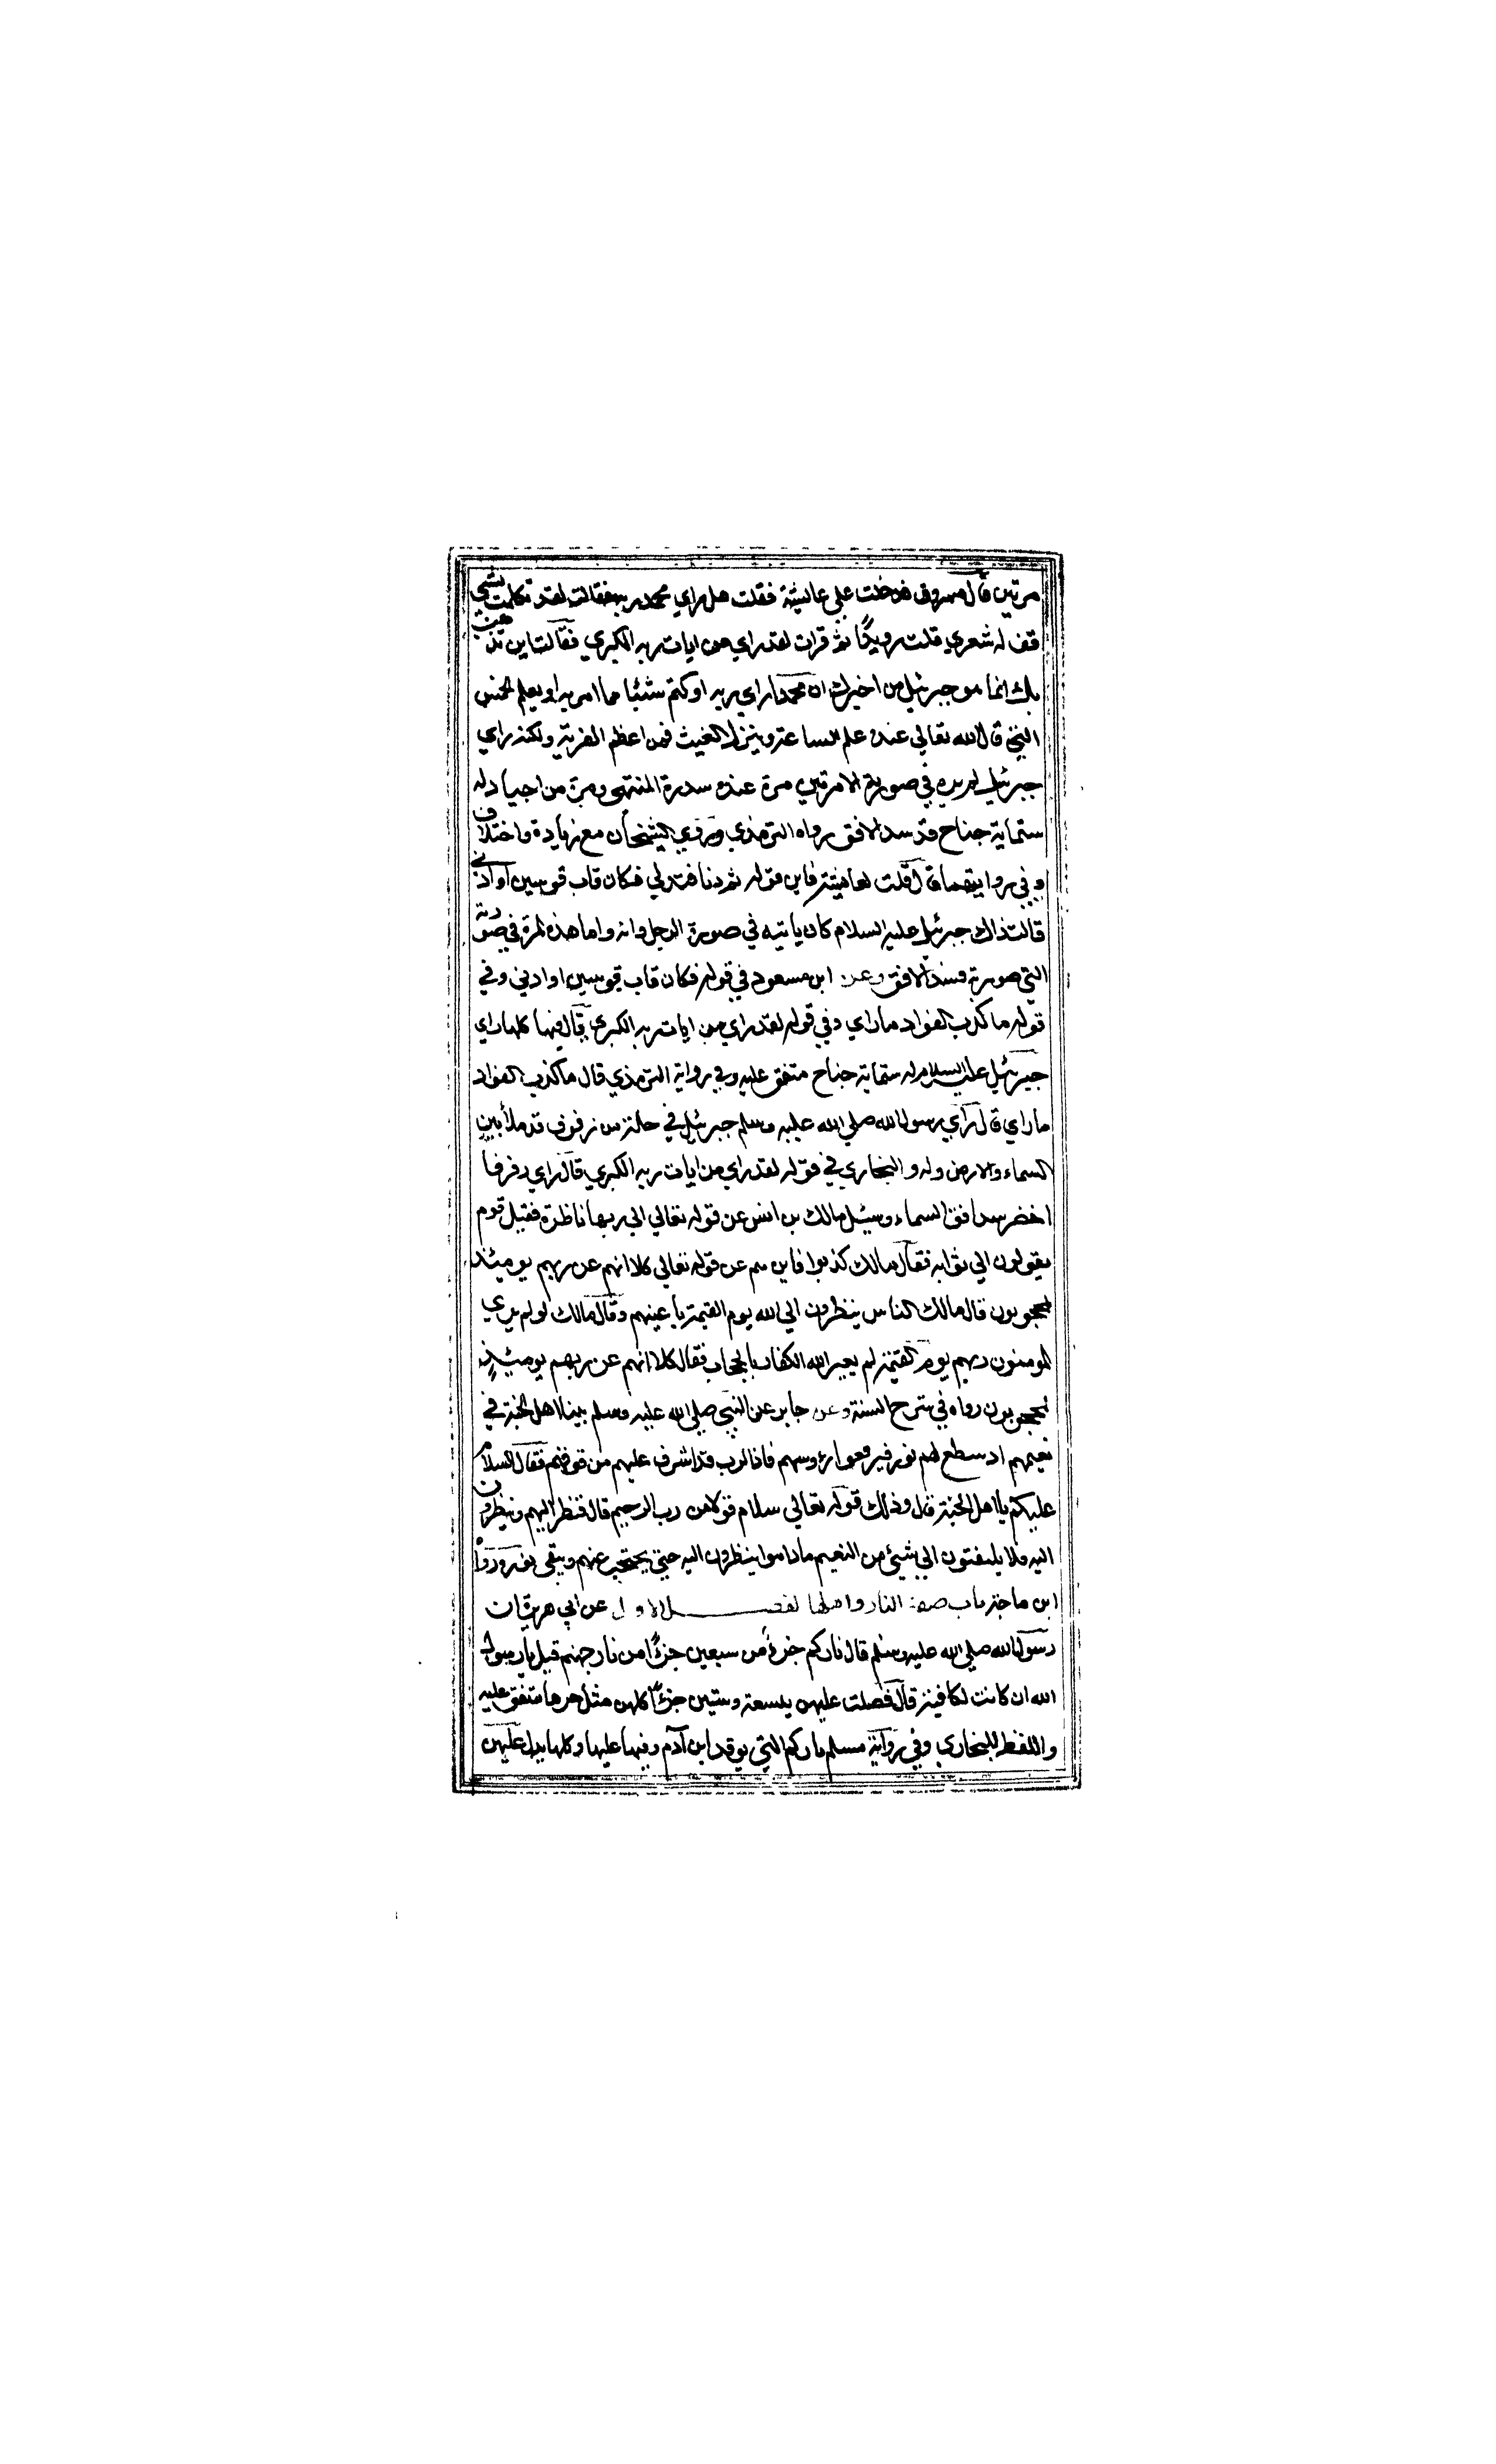 مرتين قال مسروق فدخلت علي عايشة فقلت هل راي محمد ربه فقالت لقد تكلمت بشي
قف له شعري قلت رويدًا ثم قرات لقد راي من ايات ربه الكبري فقالت اين تذهب
بك انما هو جبرئيل من اخبرك ان محمدا راي ربه او كتم شيئا مما امر به او يعلم الخمس
التي قال الله تعالي عنده علم الساعة وينزل الغيث فمن اعظم الفرية ولكنه راي
جبرئيل لم يره في صورته الا مرتين مرة عنده سدرة المنتهي ومرة من اجياد له
ستماية جناح قد سد الافق رواه الترمذي وروي الشيخان مع زيادة واختلاف
وفي روايتهما قال قلت لعايشة فاين قوله ثم دنا فتدلي فكان قاب قوسين او ادني
قالت ذاك جبرئيل عليه السلام كان ياتيه في صورة الرجل وانه واما هذه المرة في صورته
التي صورته فسد الافق وعن ابن مسعود في قوله فكان قاب قوسين او ادني وفي
قوله ما كذب الفواد ما راي وفي قوله لقد راي من ايات ربه الكبري قال فيها كلها راي
جبرئيل عليه السلام له ستماية جناح متفق عليه وفي رواية الترمذي قال ما كذب الفواد
ما راي قال راي رسول الله صلي الله عليه وسلم جبرئيل في حلة من رفرف قد ملأ بين
السماء والارض وله والبخاري في قوله لقد راي من ايات ربه الكبري قال راي رفرفا
اخضر سد افق السماء وسئل مالك بن انس عن قوله تعالي الي ربها ناظرة فقيل قوم
يقولون الي ثوابه فقال مالك كذبوا فاين هم عن قوله تعالي كلا انهم عن ربهم يومئذ
لمحجوبون قال مالك الناس ينظرون الي الله يوم القيمة باعينهم وقال مالك لو لم يري
المومنون ربهم يوم القيمة لم يعير الله الكفار بالحجاب فقال كلا انهم عن ربهم يومئذٍ
لمحجوبون رواه في شرح السنة وعن جابر عن النبي صلي الله عليه وسلم بينا اهل الجنة في
نعيمهم اذ سطع لهم نور فرفعوا رؤسهم فاذا الرب قد اشرف عليهم من فوقهم فقال السلام
عليكم يا اهل الجنة قال وذلك قوله تعالي سلام قولا من رب الرحيم قال فنظر اليهم وينظرون
اليه فلا يلتفتون الي شيئ من النعيم ماداموا ينظرون اليه حتي يحتجب عنهم ويبقي نوره رواه
ابن ماجة باب صفة النار واهلها الفصل الاول عن ابي هريرة ان
رسول الله صلي الله عليه وسلم قال ناركم جزءٌ من سبعين جزءًا من نار جهنم قيل يا رسول
الله ان كانت لكافية قال فضلت عليهن بتسعة وستين جزءًا كلهن مثل حرها متفق عليه
واللفظ للبخاري وفي رواية مسلم ناركم التي يوقد ابن آدم وفيها عليها وكلها بدل عليهن